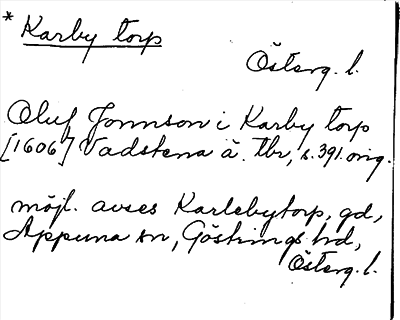 * Karby torp
Österg. l.
Oluf Jonnson i Karby torp
[1606] Vadstena ä. tbr, s. 391. orig.
möjl. avses Karlebytorp, gd,
Appuna sn, Göstrings hd,
Österg. l.